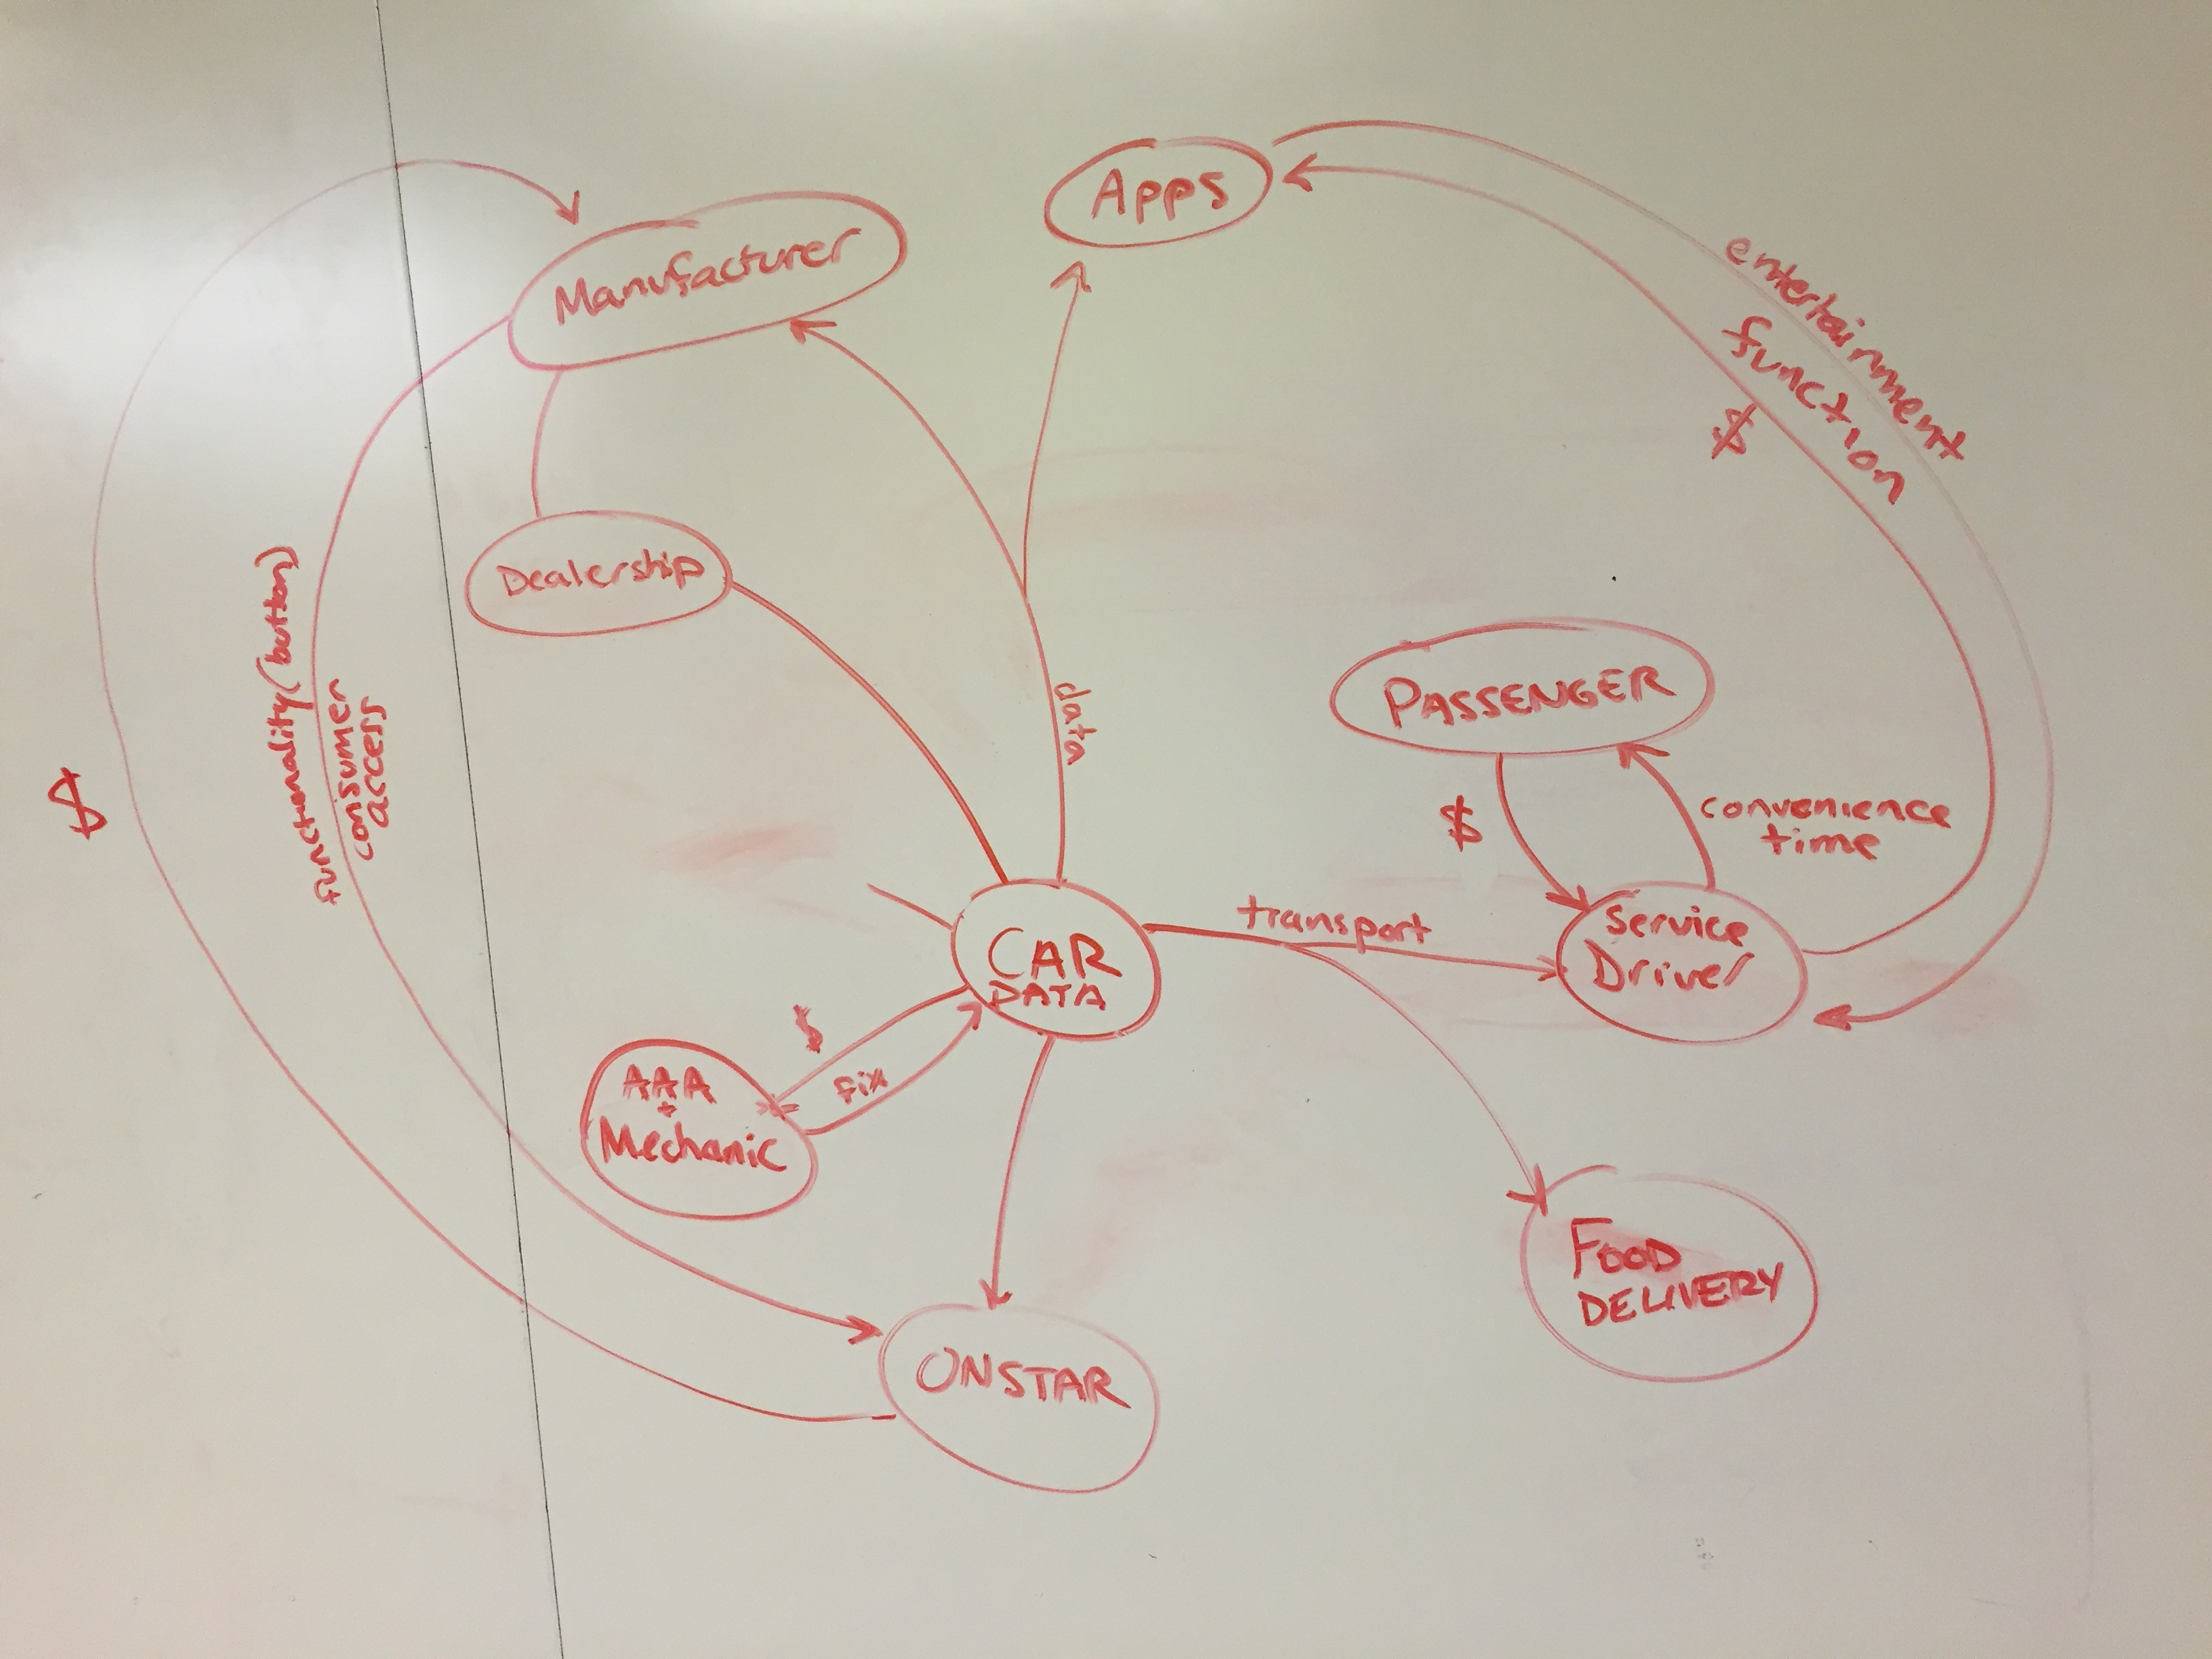 Apps
Manufacturer
entertainment
function
$
Dealership
functionality (button)
consumer
access
$
data
PASSENGER
$
convenience
time
transport
Service
Driver
CAR
DATA
$
fix
AAA
+
Mechanic
FOOD
DELIVERY
ONSTAR